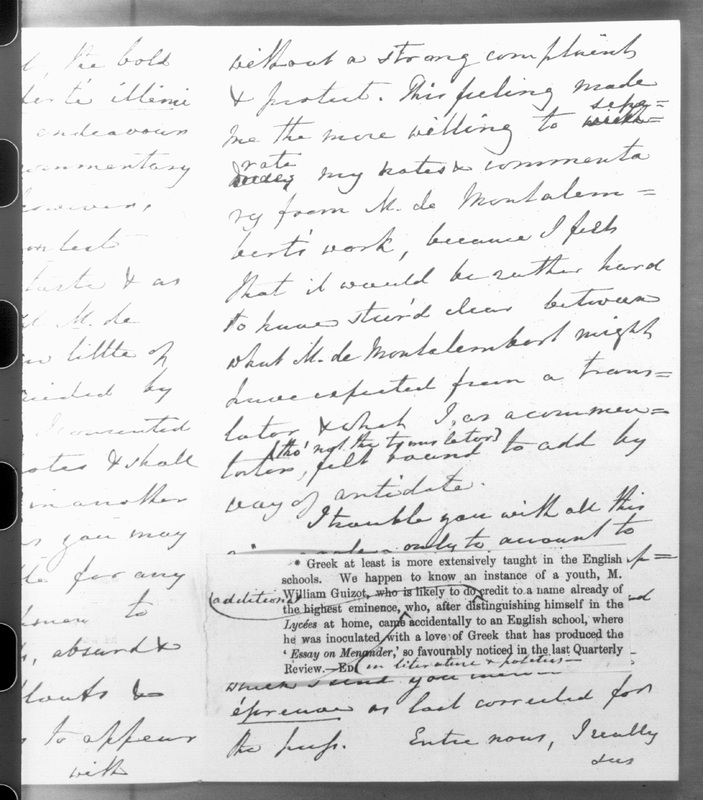 d, the bold
té illimi
endeavours
commentary
however,
contest
taste & as
M. de
little of
by
I consented
notes & shall
in another
as you may
for any
to
absurd &
&
to appear
with
without a strong complaint
& protest. This feeling made
me the more willing to sepa=
rate my notes & commenta
ry from M. de Montalem=
bert's work, because I felt
that it would be rather hard
to have steer'd clear between
what M. de Montalembert might
have expected from a trans=
lator & what I, as a commen=
(tho' not the translator)
tator, felt bound to add by
way of antidote.
I trouble you with all this
only to amount to
* Greek at least is more extensively taught in the English
schools. We happen to know an instance of a youth, M.
William Guizot, who is likely to do credit to a name already of
(additional
the highest eminence, who, after distinguishing himself in the
Lycées at home, came accidentally to an English school, where
he was inoculated with a love of Greek that has produced the
‘Essay on Menander,’ so favourably noticed in the last Quarterly
Review.—ED. in literature & politics—
which I send you
épreuve as last corrected for
the press. Entre nous, I really